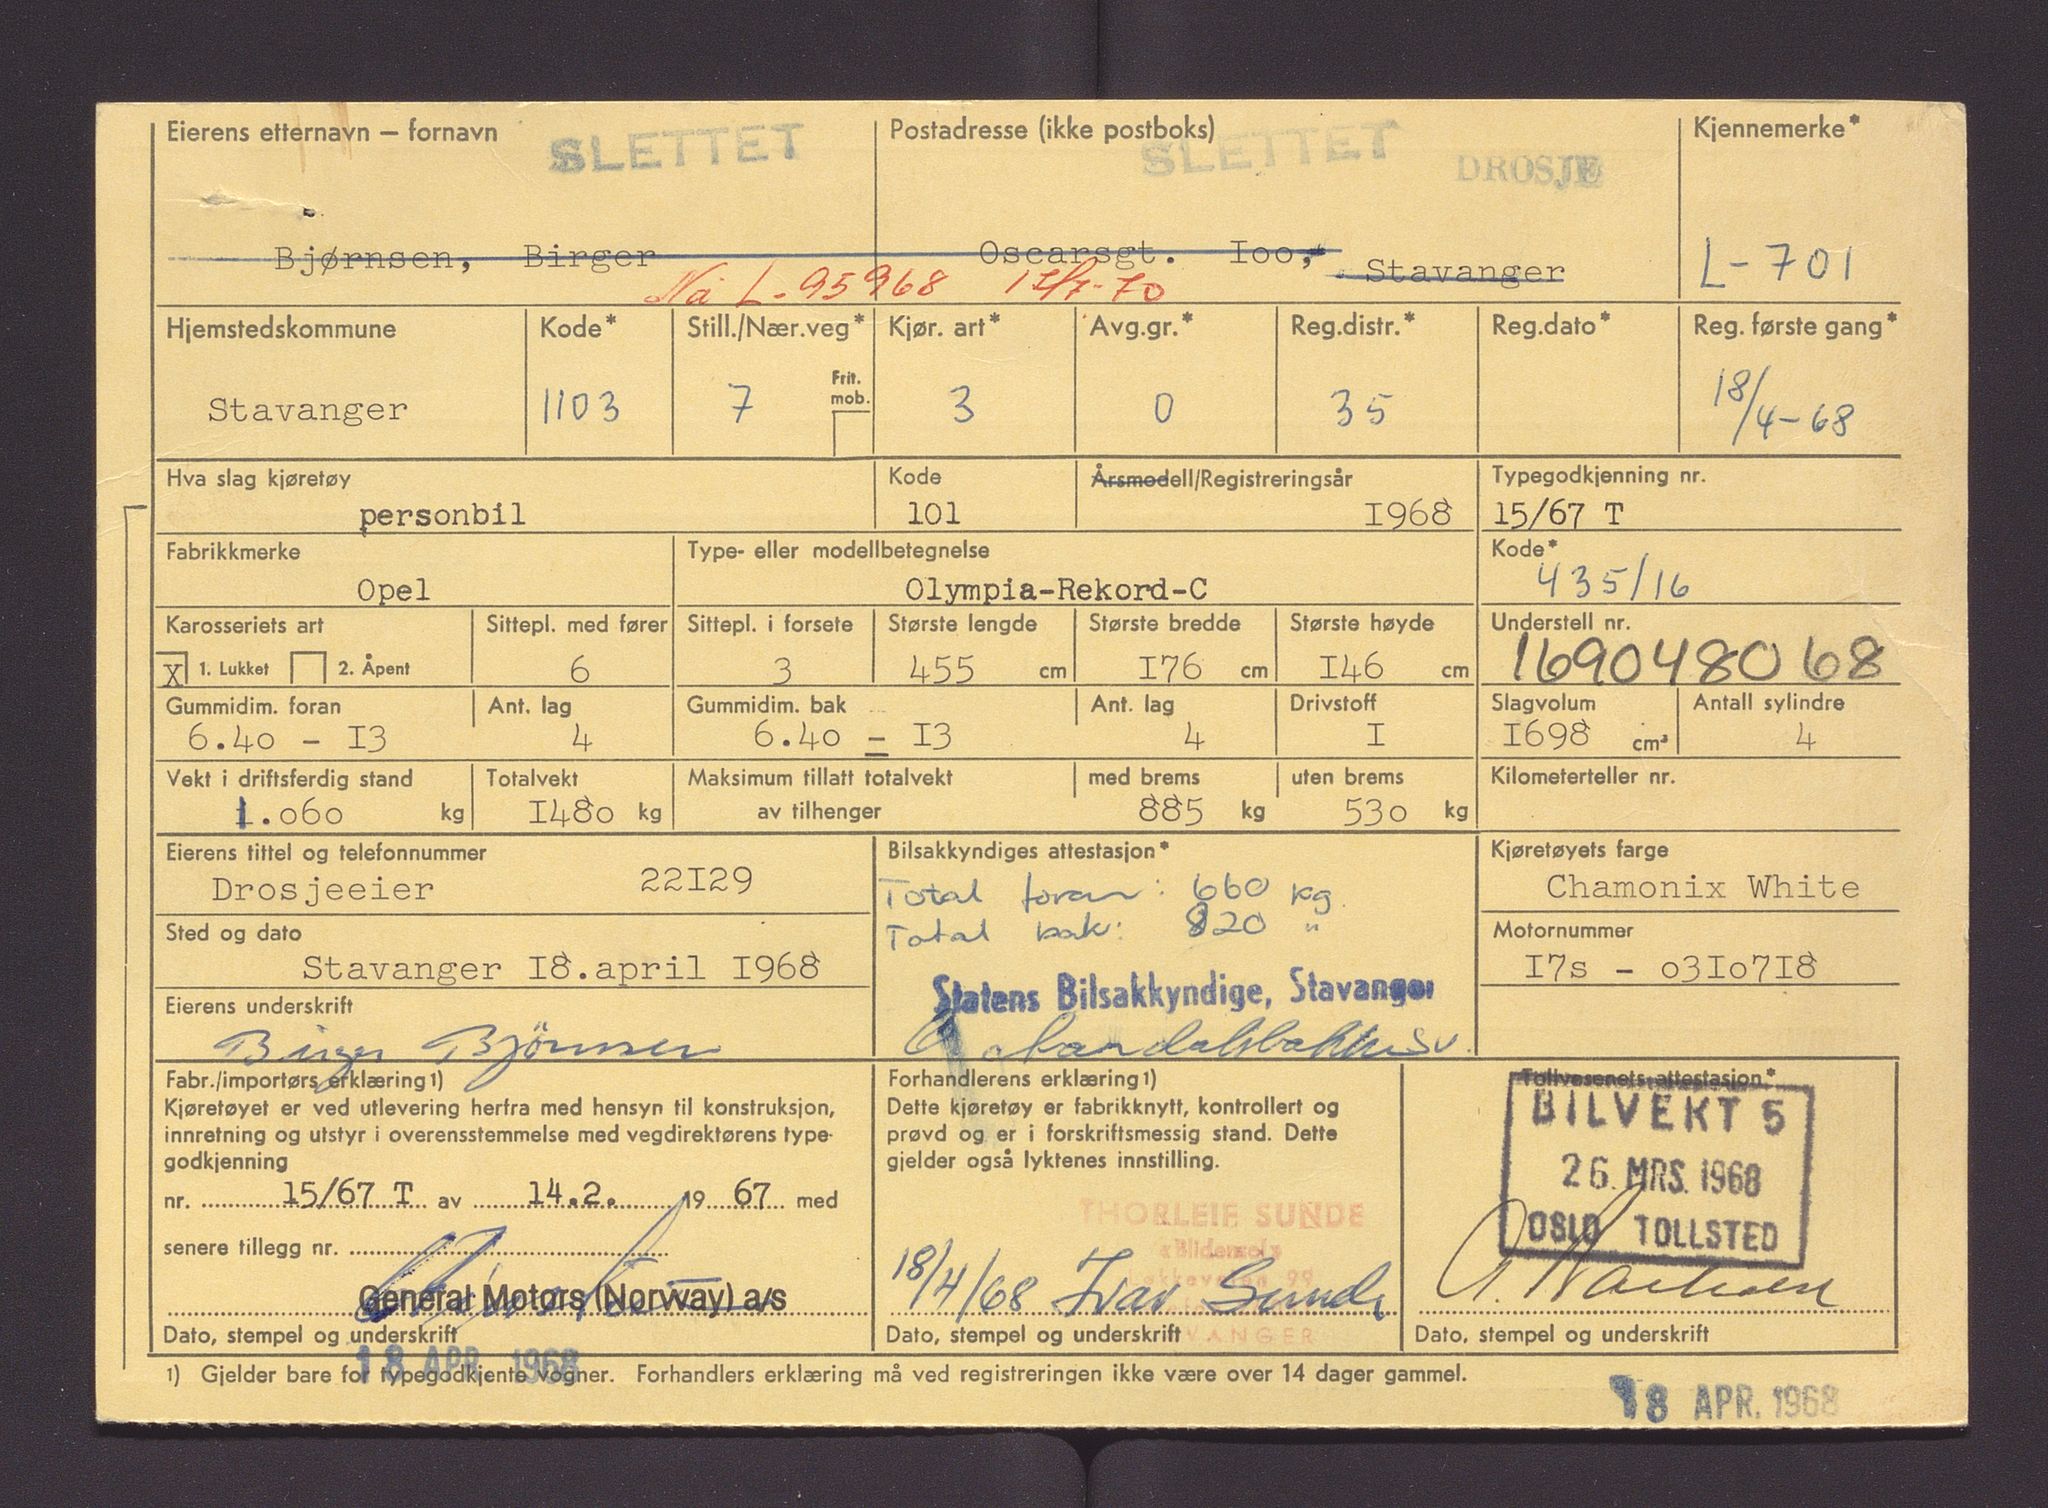 Eierens etternavn – fornavn SLETTET Postadresse (ikke postboks) SLETTET DROSJE Kjennemerke*
Bjørnsen, Birger Oscarsgt. Ioo, Stavanger L-701
Nå L-95968
Hjemstedskommune Kode* Still./Nær.veg* Kjør. art* Avg.gr.* Reg.distr.* Reg.dato* Reg. første gang*
Frit. mob.
Stavanger 1103 7 3 0 35 18/4-68
Hva slag kjøretøy Kode Årsmodell/Registreringsår Typegodkjenning nr.
personbil 101 I968 15/67 T
Fabrikkmerke Type- eller modellbetegnelse Kode*
Opel Olympia-Rekord-C 435/16
Karosseriets art Sittepl. med fører Sittepl. i forsete Største lengde Største bredde Største høyde Understell nr.
X 1. Lukket 2. Åpent 6 3 455 cm I76 cm I46 cm 169048068
Gummidim. foran Ant. lag Gummidim. bak Ant. lag Drivstoff Slagvolum Antall sylindre
6.40 - I3 4 6.40 - I3 4 I I698 cm³ 4
Vekt i driftsferdig stand Totalvekt Maksimum tillatt totalvekt med brems uten brems Kilometerteller nr.
1.060 kg I480 kg av tilhenger 885 kg 530 kg
Eierens tittel og telefonnummer Bilsakkyndiges attestasjon* Kjøretøyets farge
Drosjeeier 22I29 Total foran: 660 kg. Chamonix White
Total bak: 820 "
Sted og dato Motornummer
Stavanger I8.april I968 I7s - o3Io7I8
Statens Bilsakkyndige, Stavanger
Eierens underskrift
Birger Bjørnsen
Fabr./importørs erklæring 1) Forhandlerens erklæring 1) Tollvesenets attestasjon*
Kjøretøyet er ved utlevering herfra med hensyn til konstruksjon, Dette kjøretøy er fabrikknytt, kontrollert og BILVEKT 5
innretning og utstyr i overensstemmelse med vegdirektørens type- prøvd og er i forskriftsmessig stand. Dette
godkjenning gjelder også lyktenes innstilling. 26. MRS. 1968
nr. 15/67 T av 14.2. 19 67 med THORLEIF SUNDE OSLO TOLLSTED
senere tillegg nr.
General Motors (Norway) a/s 18/4/68 Ivar Sunde
Dato, stempel og underskrift Dato, stempel og underskrift Dato, stempel og underskrift
18 APR. 1968
1) Gjelder bare for typegodkjente vogner. Forhandlers erklæring må ved registreringen ikke være over 14 dager gammel.
18 APR. 1968